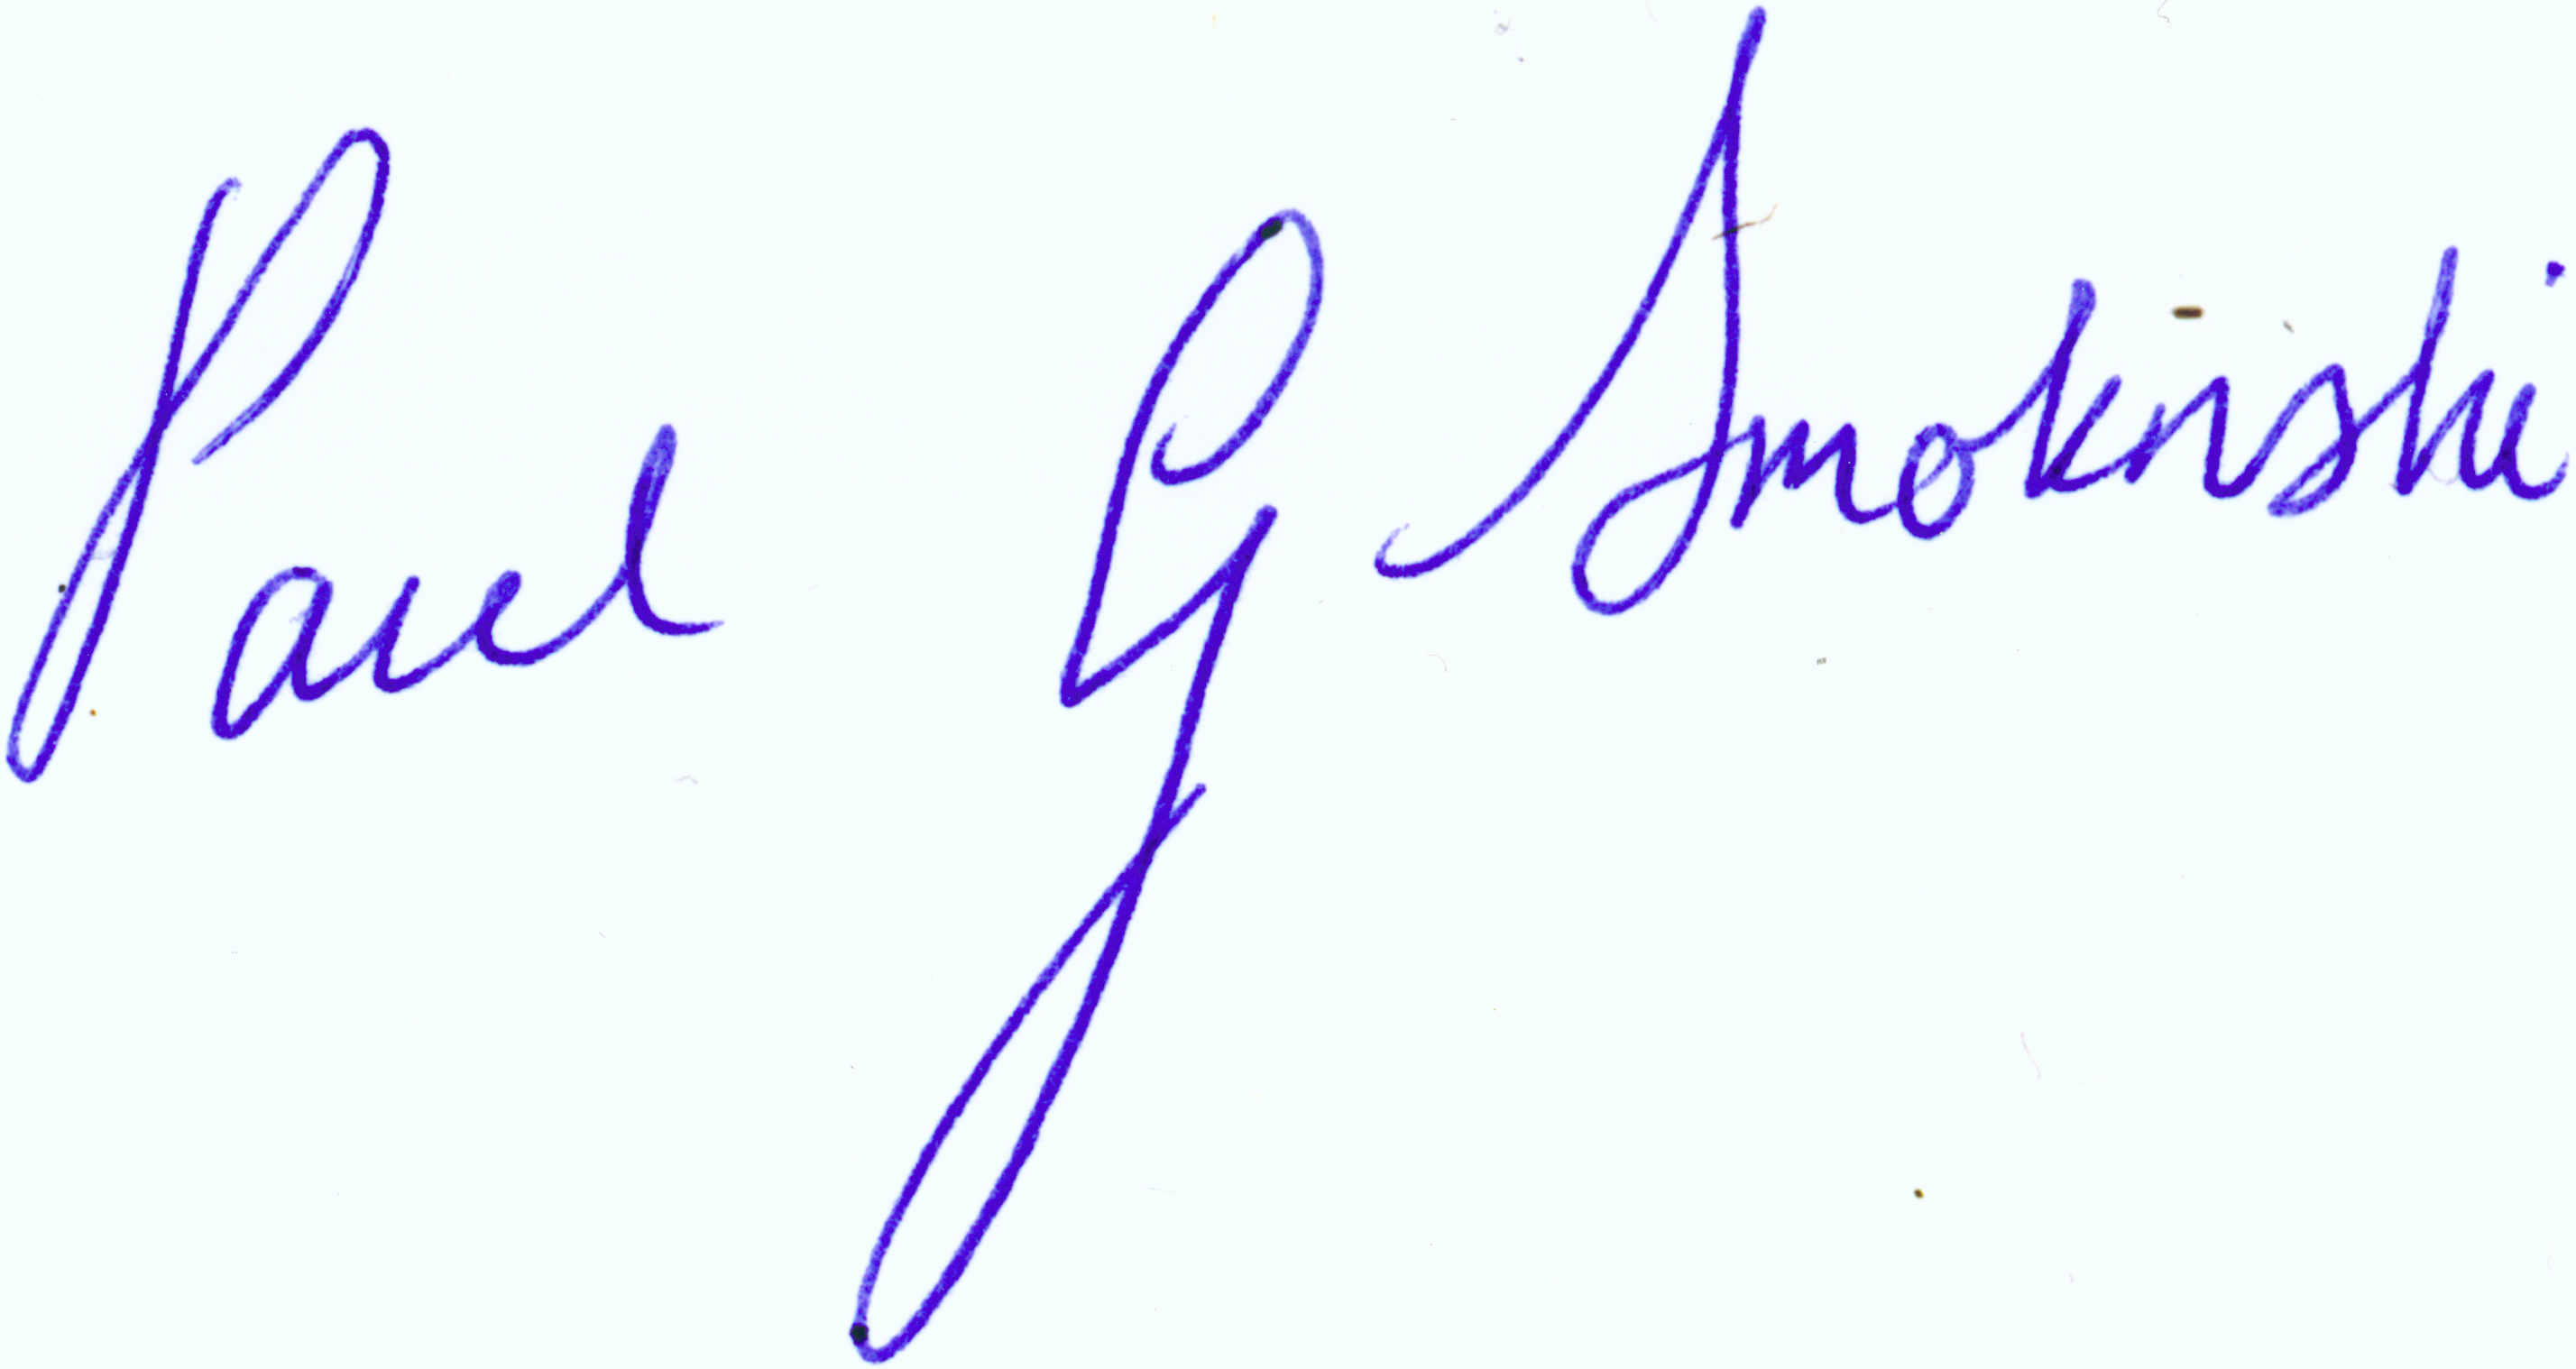 Paul G Smoknski